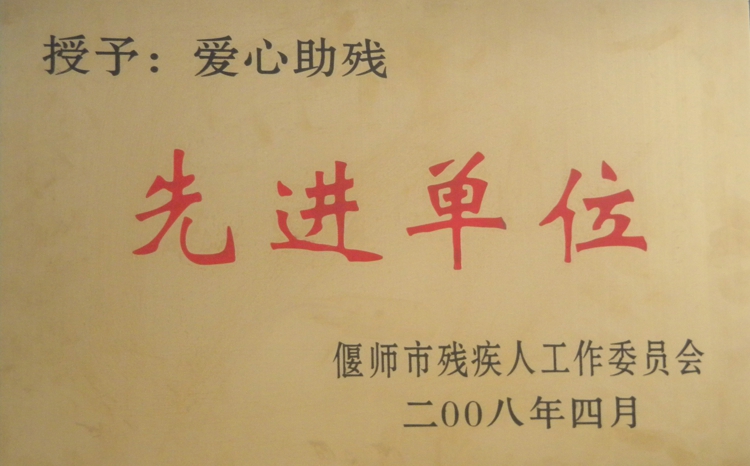 授予：爱心助残
先进单位
偃师市残疾人工作委员会
二00八年四月